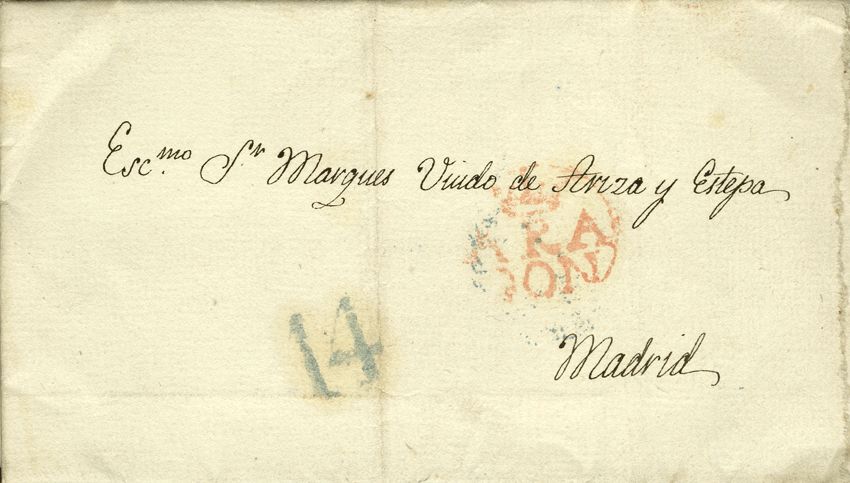 Esc.mo Sr Marques Viudo de Ariza y Estepa
ARA
GON
14
Madrid